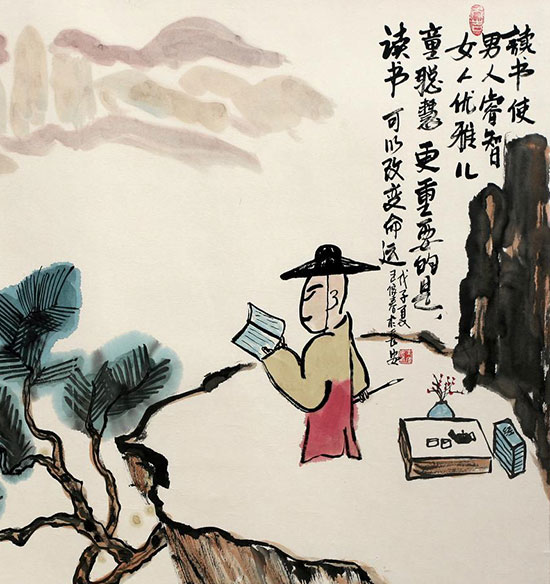 读书使
男人睿智
女人优雅儿
童聪慧更重要的是、
读书可以改变命运
戊子夏